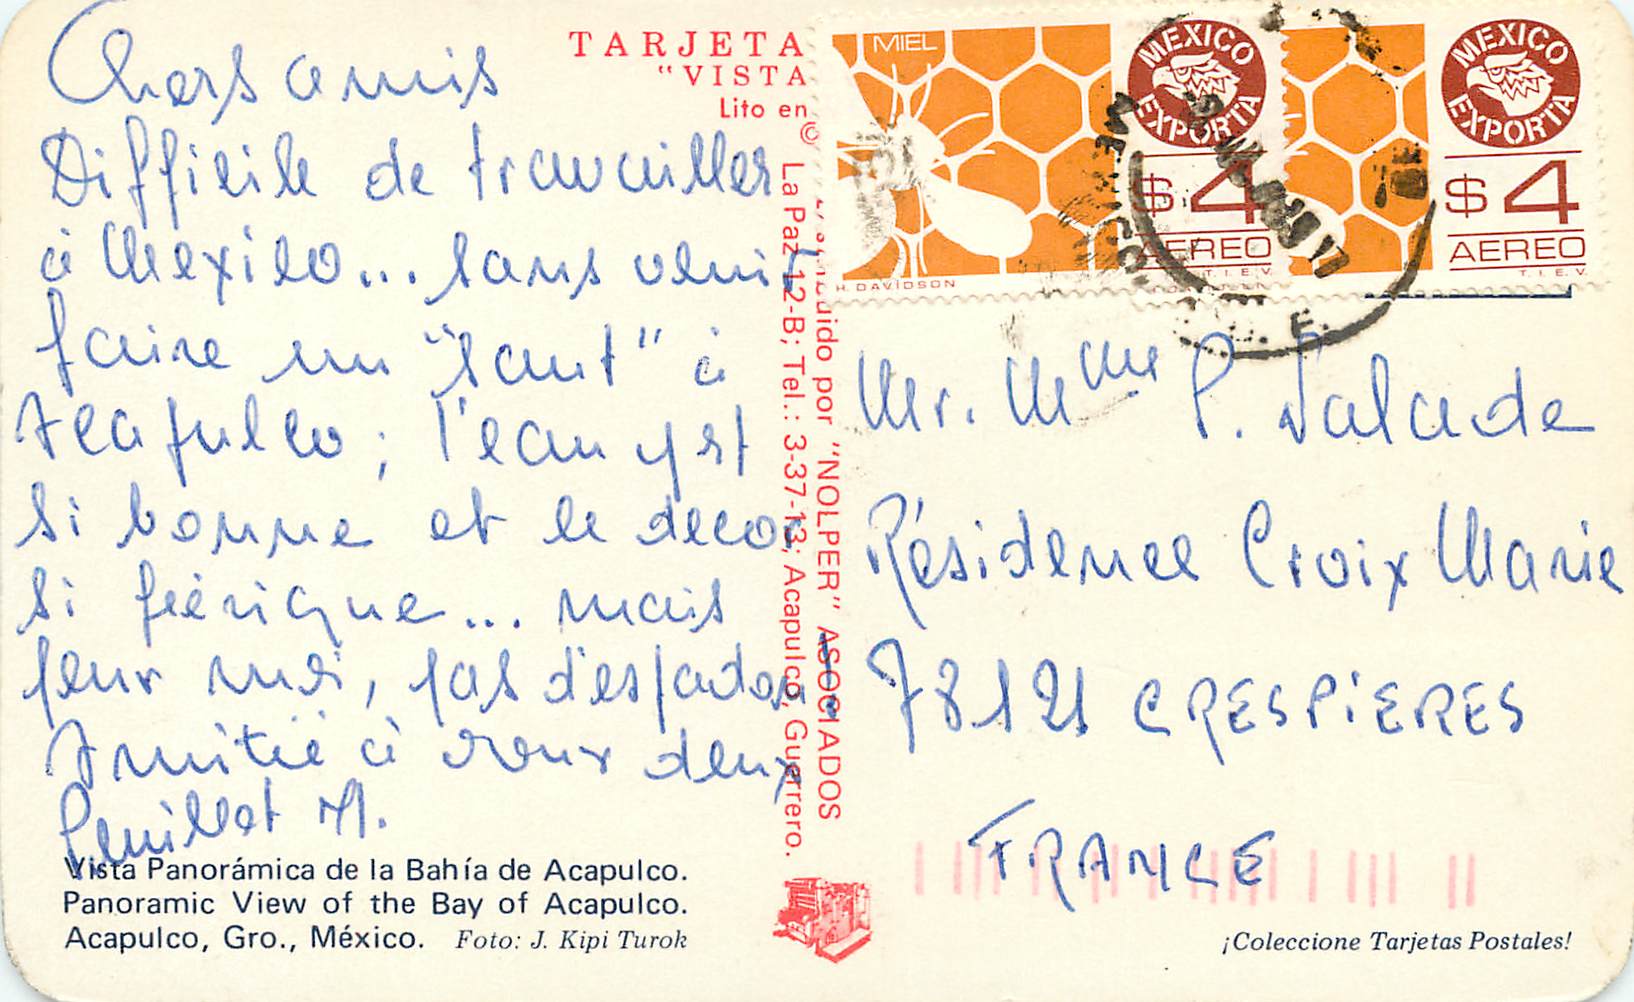 Chers amis
Difficile de travailler
à Mexico... sans venir
faire un "saut" à
Acapulco; l'eau y est
si bonne et le decor
si féérique... mais
pour moi, pas d'espadon
Amitié à vous deux
M.
TARJETA
"VISTA
Lito en
©
La Paz 12-B; Tel.: 3-37-13; Acapulco, Guerrero.
por "NOLPER" ASOCIADOS
MIEL
H. DAVIDSON
MEXICO
EXPORTA
$4
AEREO
T.I.E.V.
MEXICO
EXPORTA
$4
AEREO
T.I.E.V.
Mr. Mme P. Salade
Résidence Croix Marie
78121 CRESPIERES
FRANCE
Vista Panorámica de la Bahía de Acapulco.
Panoramic View of the Bay of Acapulco.
Acapulco, Gro., México. Foto: J. Kipi Turok
¡Coleccione Tarjetas Postales!